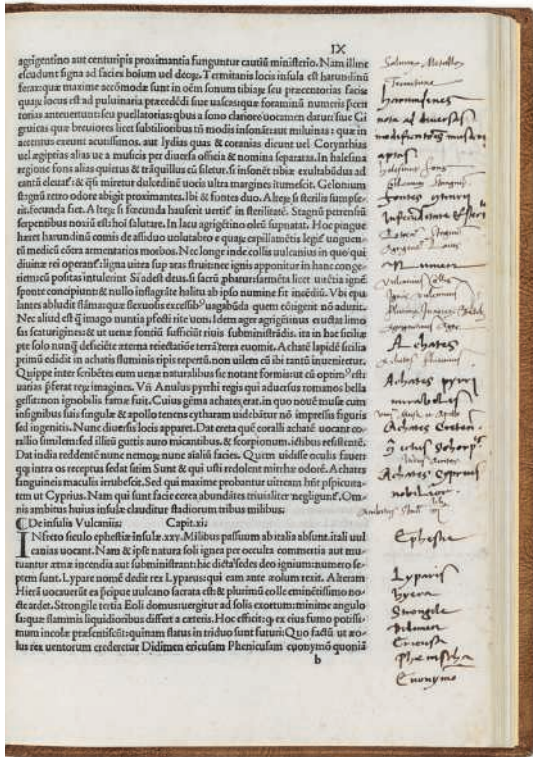 IX
agrigentino aut centuripis proximantia funguntur cautiũ ministerio. Nam illinc
excudunt signa ad facies hoium uel deoꝝ. Termitanis locis insula est harundinũ
ferax: quæ maxime accõmodæ sunt in oẽm sonum tibiaꝝ seu præcentorias facias
quaꝝ locus est ad puluinaria præcedẽdi siue uascas: quæ foraminũ numeris præcẽ
torias antecedunt: seu puellatorias: quibus a sono clariore uocamen datum: siue Gi
gruias quæ breuiores licet subtilioribus tñ modis insonãt: aut miluinas: quæ in
accentus exeunt acutissimos. aut lydias quas & coranias dicunt uel Corynthias
uel ægiptias alias ue a musicis per diuersa officia & nomina separatas. In halesina
regione fons alias quietus & trãquillus cũ siletur. si insonẽt tibiæ exultabũdus ad
cantũ eleuat: & quasi miretur dulcedinẽ uocis ultra margines itumescit. Gelonium
stagnũ tetro odore abigit proximantes. Ibi & fontes duo. Alteꝝ si sterilis sumpse-
rit, fecunda fiet. Alteꝝ si fœcunda hauserit uertit in sterilitatẽ. Stagnũ petrensiũ
serpentibus noxiũ est: hoi salutare. In lacu agrigẽtino oleũ supnatat. Hoc pingue
hæret harundinũ comis de assiduo uolutabro e quaꝝ capillamẽtis legit unguen-
tũ medicũ cõtra armentarios morbos. Nec longe inde collis uulcanius in quo qui
diuinæ rei operant: ligna uitea sup aras struit: nec ignis apponitur in hanc conge-
riem: cũ positas intulerint. Si adest deus. si sacrũ phatur: sarmẽta licet uiridia ignẽ
sponte concipiunt: & nullo inflagrãte halitu ab ipso numine fit incẽdiũ. Vbi epu
lantes abludit flãma: quæ flexuosis excessibꝰ uagabũda quem cõtigerit nõ adurit.
Nec aliud est q̃ imago nuntia pfecti rite uoti. Idem ager agrigẽtinus eructat limo
sas scaturigines: & ut uenæ fontiũ sufficiũt riuis subministrãdis. ita in hac siciliæ
pte solo nunq̃ deficiẽte æterna reiectatiõe terrã terra euomit. Achatẽ lapidẽ sicilia
primũ edidit in achatis fluminis ripis repertũ. non uilem cũ ibi tantũ inueniretur.
Quippe inter scribẽtes eum uenæ naturalibus sic notant formis: ut cũ optimꝰ est:
uarias pferat reꝝ imagines. Vñ Anulus pyrrhi regis qui aduersus romanos bella
gessit: non ignobilis famæ fuit. Cuius gẽma achates erat. in quo nouẽ musæ cum
insignibus suis singulæ & apollo tenens cytharam uidebãtur nõ impressis figuris
sed ingenitis. Nunc diuersis locis apparet. Dat creta quẽ coralli achatẽ uocant co-
rallio similem: sed illitũ guttis auro micantibus. & scorpionum. ictibus resistentẽ.
Dat india reddentẽ nunc nemoꝝ nunc aialiũ facies. Quem uidisse oculis fauet:
qꝗ intra os receptus sedat sitim Sunt & qui usti redolent mirrhæ odorẽ. Achates
sanguineis maculis irrubescit. Sed qui maxime probantur uitream hñt pspicuita-
tem ut Cyprius. Nam qui sunt facie cerea abundãtes triuialiter negligunt. Om-
nis ambitus huius insulæ clauditur stadiorum tribus milibus:
De insulis Vulcaniis: Capit. xii:
IN freto siculo ephestiæ insulæ. xxv. Milibus passuum ab italia absunt. itali uul
canias uocant. Nam & ipsæ natura soli ignea per occulta commertia aut mu-
tuantur ætnæ incendia aut subministrant: hic dicta sedes deo ignium: numero se-
ptem sunt. Lypare nomẽ dedit rex Lyparus: qui eam ante æolum rexit. Alteram
Hierã uocauerũt ea pcipue uulcano sacrata est: & plurimũ colle eminẽtissimo no-
cte ardet. Strongile tertia Eoli domus: uergitur ad solis exortum: minime angulo
sa: quæ flammis liquidioribus differt a cæteris. Hoc efficit: q̃ ex eius fumo potissi-
mum incolæ præsentiscũt: quinam flatus in triduo sunt futuri: Quo factũ ut æo-
lus rex uentorum crederetur Didimen ericusam Phenicusam euonymõ quoniã
b
Achates
Achates pyrri
mirabilis
Achates Cypreus
nobilior
Ephestie
Lyparis
hyera
Strongile
Didimen
Ericusa
Phenischa
Euonymo